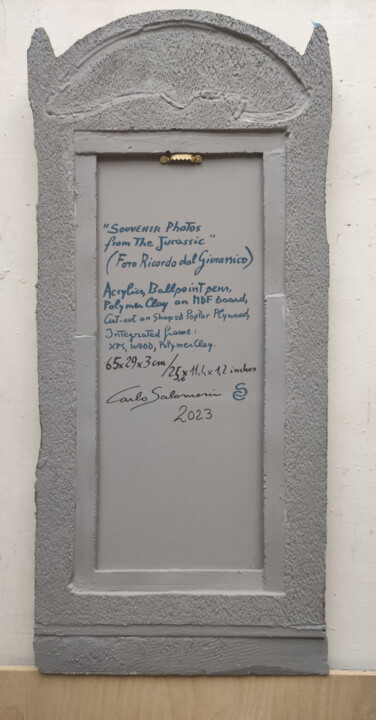 "Souvenir Photos
from The Jurassic"
(Foto Ricordo dal Giurassico)
Acrylics, Ballpoint pens,
Polymer Clay on MDF board,
Cut-out on Shaped Poplar Plywood,
Integrated frame:
XPS, WOOD, Polymer Clay.
65x29x3 cm/25,6 x 11,4 x 1,2 inches
Carlo Salomoni
2023